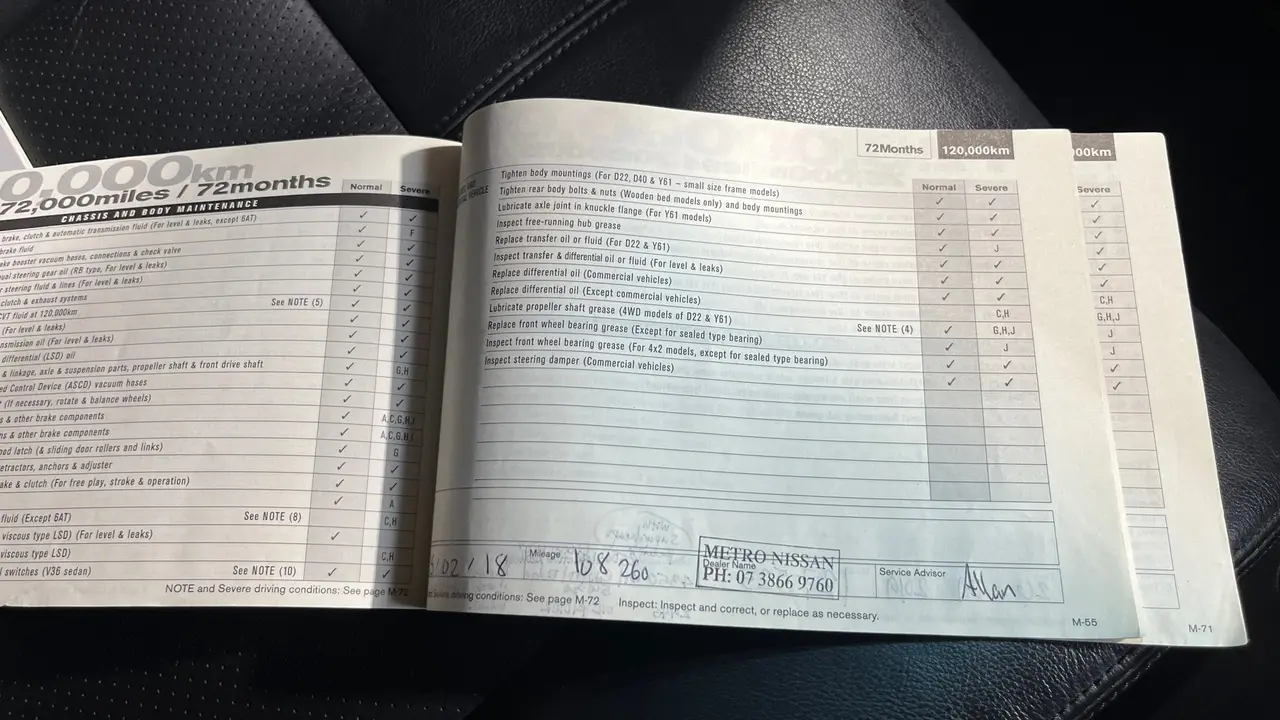 0,000km
72,000miles / 72months
CHASSIS AND BODY MAINTENANCE
Normal Severe
brake, clutch & automatic transmission fluid (For level & leaks, except 6AT) ✓ ✓
brake fluid ✓ F
booster vacuum hoses, connections & check valve ✓ ✓
steering gear oil (RB type, For level & leaks) ✓ ✓
steering fluid & lines (For level & leaks) ✓ ✓
clutch & exhaust systems ✓ ✓
CVT fluid at 120,000km See NOTE (5) ✓ ✓
(For level & leaks) ✓ ✓
oil (For level & leaks) ✓ ✓
differential (LSD) oil ✓ ✓
& linkage, axle & suspension parts, propeller shaft & front drive shaft ✓ G,H
Control Device (ASCD) vacuum hoses ✓ ✓
(If necessary, rotate & balance wheels) ✓ ✓
& other brake components ✓ A,C,G,H,I
& other brake components ✓ A,C,G,H,I
latch (& sliding door rollers and links) ✓ G
retractors, anchors & adjuster ✓ ✓
& clutch (For free play, stroke & operation) ✓ ✓
✓ A
fluid (Except 6AT) See NOTE (8) C,H
viscous type LSD) (For level & leaks) ✓
viscous type LSD) C,H
switches (V36 sedan) See NOTE (10) ✓ ✓
NOTE and Severe driving conditions: See page M-72
72Months 120,000km
VEHICLE
Normal Severe
Tighten body mountings (For D22, D40 & Y61 – small size frame models) ✓ ✓
Tighten rear body bolts & nuts (Wooden bed models only) and body mountings ✓ ✓
Lubricate axle joint in knuckle flange (For Y61 models) ✓ ✓
Inspect free-running hub grease ✓ J
Replace transfer oil or fluid (For D22 & Y61) ✓ ✓
Inspect transfer & differential oil or fluid (For level & leaks) ✓ ✓
Replace differential oil (Commercial vehicles) C,H
Replace differential oil (Except commercial vehicles) See NOTE (4) ✓ G,H,J
Lubricate propeller shaft grease (4WD models of D22 & Y61) ✓ J
Replace front wheel bearing grease (Except for sealed type bearing) ✓ ✓
Inspect front wheel bearing grease (For 4x2 models, except for sealed type bearing) ✓ ✓
Inspect steering damper (Commercial vehicles)
/02/18
Mileage 108 260
Dealer Name
METRO NISSAN
PH: 07 3866 9760
Service Advisor Allan
driving conditions: See page M-72 Inspect: Inspect and correct, or replace as necessary.
M-55
00km
Severe
✓
✓
✓
✓
✓
C,H
G,H,J
J
J
✓
✓
M-71